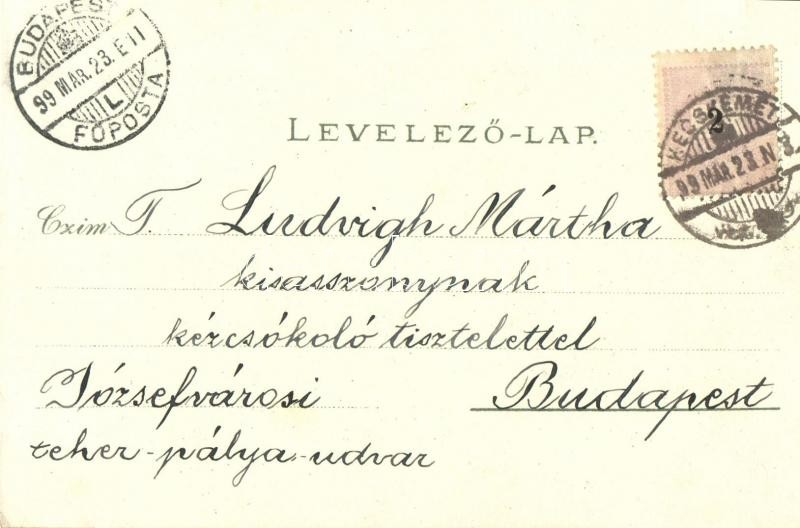 BUDAPEST
99 MAR. 23. E 11
L
FŐPOSTA
LEVELEZŐ-LAP.
2
KECSKEMÉT
99 MAR. 23. N 8
Czim T. Ludvigh Mártha
kisasszonynak
kézcsókoló tisztelettel
Józsefvárosi Budapest
teher-pálya-udvar